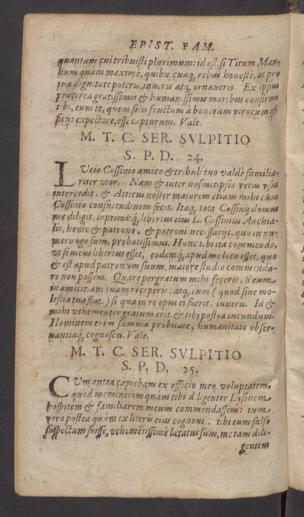 EPIST. FAM.
quantum cui tribuisti plurimum: id est. si Titum Man-
lium quam maxime, quibuscunq, rebus honeste, ac pro
tua dignitate poteris, iuueris atq, ornaueris. Ex
præterea gratissimis & humanissimis moribus confirmo
tibi, eum te, quem soles fructum à bonorum virorum of-
ficijs expectare, esse capturum. Vale.
M. T. C. SER. SVLPITIO
S. P. D. 24.
LVcio Cossinio amico & tribuli tuo valde familia-
riter vtor. Nam & inter nosmetipsos vetus vsus
intercedit. & Atticus noster maiorem etiam mihi cum
Cossinio consuetudinem fecit. Itaq, tota Cossinij domus
me diligit, inprimisq, libertus eius L. Cossinius Anchia-
lus, homo & patrono, & patroni necessarijs, quo in nu-
mero ego sum, probatissimus. Hunc tibi ita commendo,
vt si meus libertus esset, eodemq, apud me loco esset, quo
& est apud patronum suum, maiore studio commenda-
re non possem. Quare pergratum mihi feceris, si eum
in amicitiam tuam receperis: atq, eum (quod sine mo-
lestia tua fiat) si qua in re opus ei fuerit, iuueris. Id &
mihi vehementer gratum erit, & tibi postea iucundum.
Hominem enim summa probitate, humanitate obser-
uantiaq, cognosces. Vale.
M. T. C. SER. SVLPITIO
S. P. D. 25.
CVm antea capiebam ex officio meo voluptatem,
quod memineram quam tibi diligenter Lysonem
hospitem & familiarem meum commendassem: tum
vero postea quàm ex literis eius cognoui, tibi eum falso
suspectum fuisse, vehementissimè lætatus sum, me tam dili-
gentem